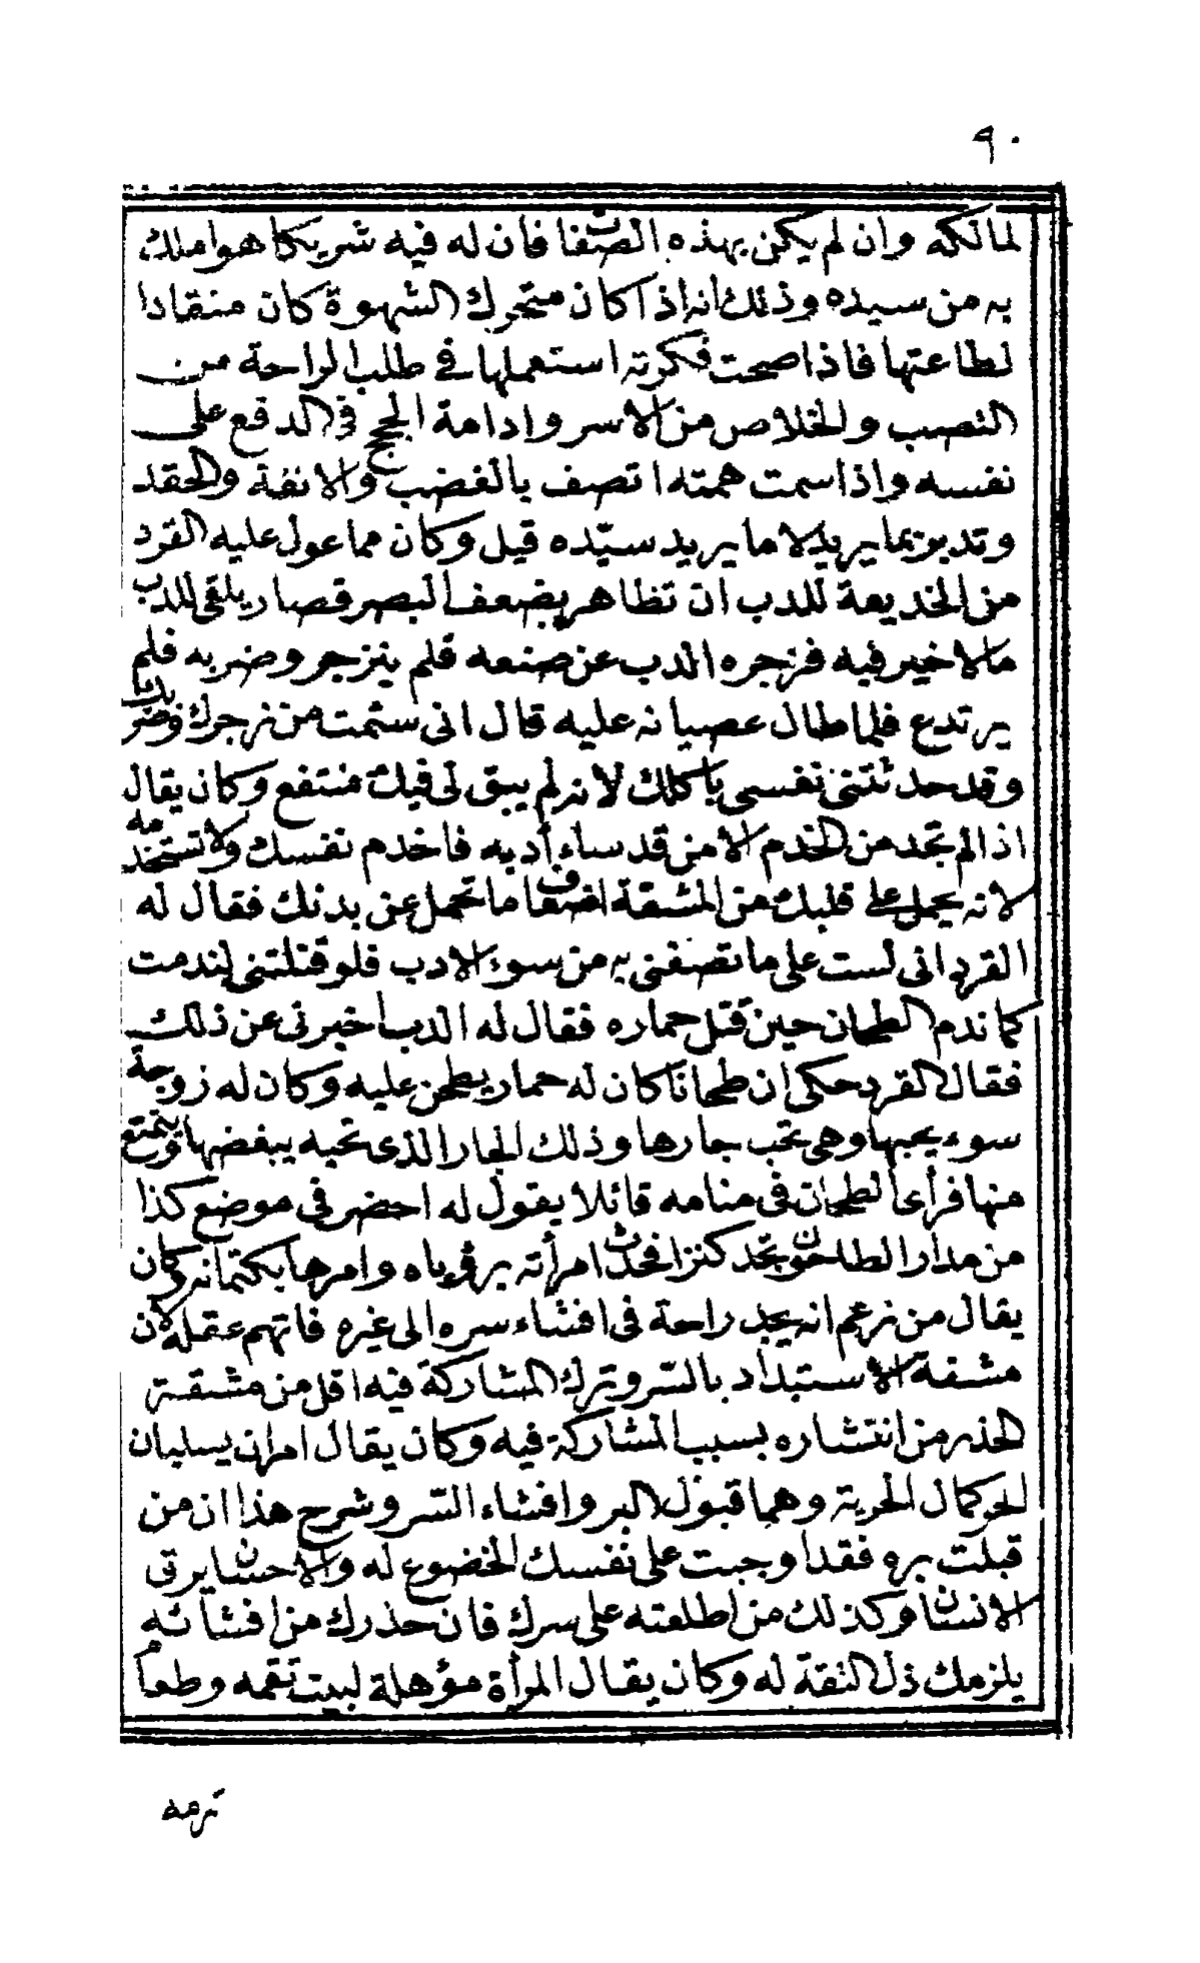 ٩٠
لمالكه وان لم يكن بهذه الصفات فان له فيه شريكا هو املك
به من سيده وذلك انه اذا كان متحرك الشهوة كان منقادا
لطاعتها فاذا صحت فكرته استعملها في طلب الراحة من
النصب والخلاص من الاسر وادامة الحجج في الدفع على
نفسه واذا سمت همته اتصف بالغضب والانفة والحقد
وتدبر بما يريد لا ما يريد سيّده قيل وكان مما عول عليه القرد
من الخديعة للدب ان تظاهر بضعف البصر فصار يلقى للدب
مالا خير فيه فزجره الدب عن صنعه فلم ينزجر وضربه فلم
يرتدع فلما طال عصيانه عليه قال انى سئمت من زجرك وضربك
وقد حدثتنى نفسى باكلك لانه لم يبق لى فيك منتفع وكان يقال
اذا لم تجد من الخدم الا من قد ساء أدبه فاخدم نفسك ولا تستخدمه
لانه يحمل على قلبك من المشقة اضعاف ما تحمل عن بدنك فقال له
القرد انى لست على ما تصفنى به من سوء الادب فلو قتلتنى لندمت
كما ندم الطحان حين قتل حماره فقال له الدب اخبرنى عن ذلك
فقال القرد حكى ان طحانا كان له حمار يطحن عليه وكان له زوجة
سوء يحبها وهى تحب جارها وذلك الجار الذى تحبه يبغضها ويتمتع
منها فرأى الطحان فى منامه قائلا يقول له احضر فى موضع كذا
من مدار الطاحون تجد كنزا فحدث امرأته برؤياه وامرها بكتمانه وكان
يقال من زعم انه يجد راحة فى افشاء سره الى غيره فاتهم عقله لان
مشقة الاستبداد بالسّر وترك المشاركة فيه اقل من مشقة
الحذر من انتشاره بسبب المشاركة فيه وكان يقال امران يسلبان
الحر كمال الحرية وهما قبول البر وافشاء السّر وشرح هذا ان من
قبلت بره فقد اوجبت على نفسك الخضوع له والاحسان يرتى
الانسان وكذلك من اطلعته على سرك فان حذرك من افشائه
يلزمك ذل التقة له وكان يقال المرأة مؤهلة لبيت تقمه وطعام
ترمه